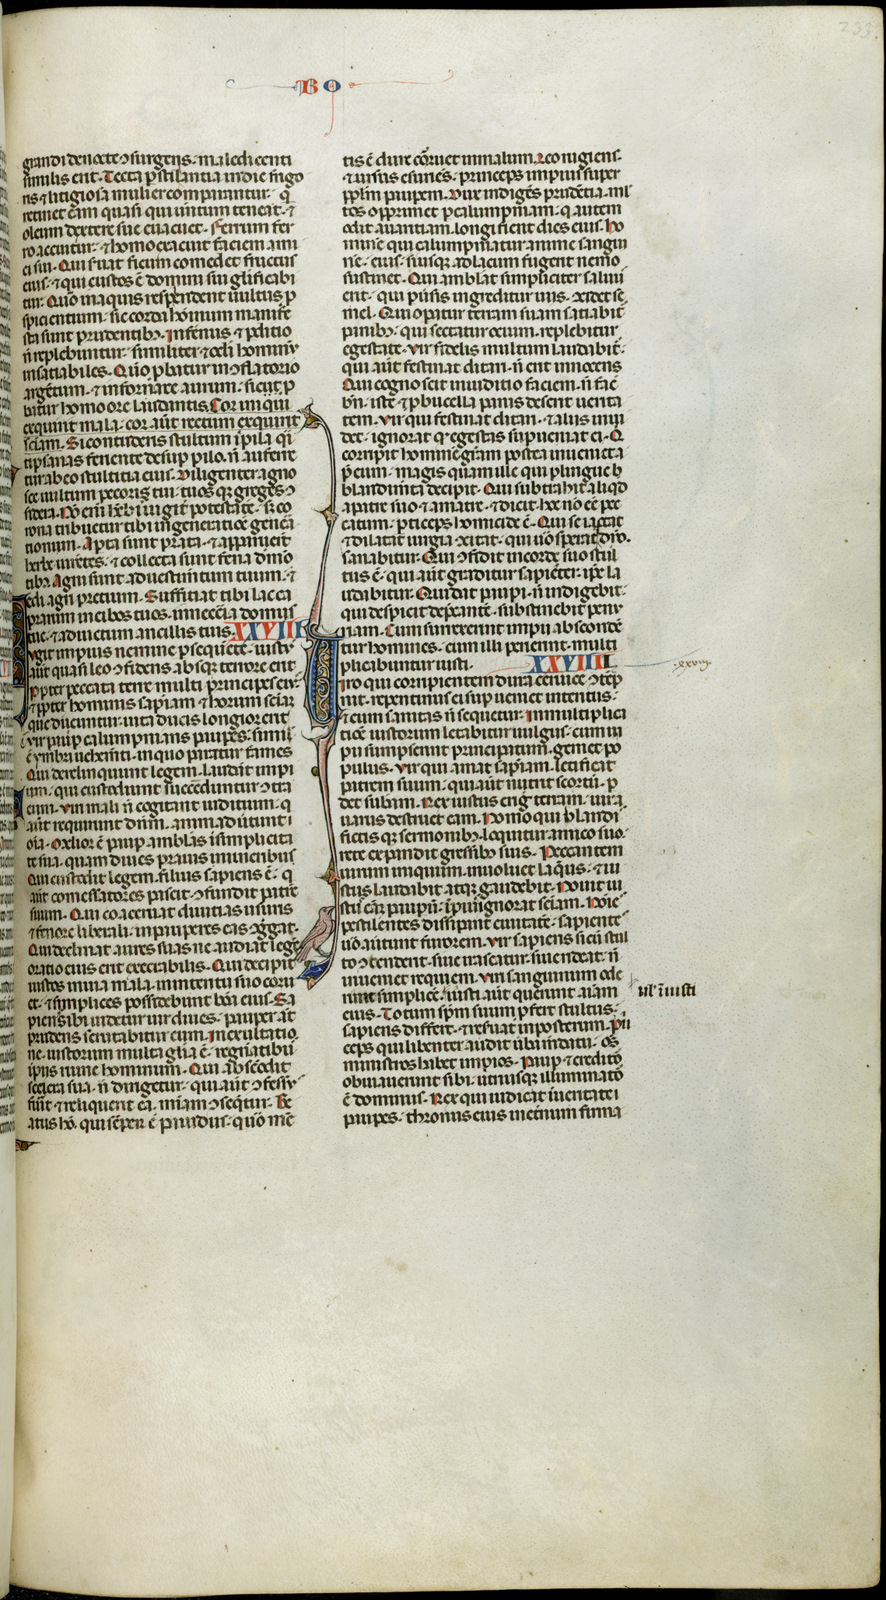 BO
233.
grandi de nocte ɔsurgens· maledicenti
similis erit· Tecta ꝑstillantia in die frigo
ris ⁊ litigiosa mulier comparantur· q̇
retinet eam quasi qui uentum teneat· ⁊
oleum dextere sue euacuet· Ferrum fer
ro acuitur· ⁊ homo exacuit faciem ami
ci sui· Qui seruat ficum comedet fructus
eius· ⁊ qui custos ē domini sui glificabi
tur· Quō in aquis resplendent uultus ꝓ
spicientium· sic corda hominum manife
sta sunt prudentibꝫ· Infernus ⁊ ꝑditio
ñ replebuntur· similiter ⁊ oculi hominū
insatiabiles· Quō ꝓbatur in ɔflatorio
argētum· ⁊ in fornace aurum· sic ꝓ
batur homo ore laudantis· Cor iniqui
exquirit mala· cor aūt rectum exquirit
sciam· Si contuderis stultum ī pila q̇si
tipsanas feriente desup pilo· ñ auferet
tur ab eo stultitia eius· Diligenter agno
sce uultum pecoris tui· tuosqꝫ greges ɔ
sidera· Nō eīm hēbis iugit potestatē· sꝫ co
rona tribuetur tibi in generatiōe genera
tionum· Aperta sunt prata· ⁊ apparuerūt
herbe uirētes· ⁊ collecta sunt fena de mō
tibꝫ· Agni sunt ad uestimtum tuum· ⁊
edi agri pretium· Sufficiat tibi lac ca
prarum in cibos tuos· in necc̄ia domus
tue· ⁊ ad uictum ancillis tuis· XXVIII
Fugit impius nemine ꝑsequēte· iustꝰ
aūt quasi leo ɔfidens absqꝫ terrore erit·
ꝓpter peccata terre multi principes eiꝰ·
⁊ ꝓpter hominis sapīam ⁊ horum sciā
que dicuntur· uita ducis longior erit·
Vir pauꝑ calumpnians pauꝑes· simil'
ē ymbri uehemēti· in quo paratur fames·
Qui derelinquunt legem· laudāt impi
um· qui custodiunt succēduntur ɔtra
eum· Viri mali ñ cogitant iuditium· q̇
aūt requirunt dn̄m· animaduertunt
oīa· Melior ē pauꝑ amblās ī simplicita
te sua· quam diues prauis itineribus·
Qui custodit legem· filius sapiens ē· q̇
aūt comessatores pascit· ɔfundit patrē
suum· Qui coaceruat diuitias usuris
⁊ fenore liberali· in pauperes eas ɔg̃gat·
Qui declinat aures suas ne audiat legē
oratio eius erit execrabilis· Qui decipit
iustos in uia mala· in interitu suo corru
et· ⁊ simplices possidebunt bōa eius· Sa
piens sibi uidetur uir diues· pauper aūt
prudens scrutabitur eum· In exultatio
ne iustorum multa glīa ē· regnātibꝫ
impiis ruine hominum· Qui abscōdit
scelera sua· ñ dirigetur· qui aūt ɔfessꝰ
fūit ⁊ reliquerit ea· mīam ɔseq̄tur· Be
atus hō qui sēper ē pauidus· quō me
tis ē dure corruet in malum· Leo rugiens·
⁊ ursus esuriēs· princeps impius super
ppl̄m pauꝑem· Dux indigēs prudētia· ml̄
tos opprimet ꝑ calumpniam· q̇ autem
odit auaritiam· longi fient dies eius· Ho
minē qui calumpniatur anime sangui
nē· eius· si usqꝫ ad lacum fugerit nemo
sustinet· Qui amblat simpliciter saluꝰ
erit· qui ꝑuersis ingreditur uiis· ɔcidet se
mel· Qui oꝑatur terram suam satiabit̄
panibꝫ· qui sectatur ocium· replebitur
egestate· Vir fidelis multum laudabit̄·
qui aūt festinat ditari· ñ erit innocens·
Qui cognoscit in iuditio faciem· ñ facit
bn̄· iste ⁊ ꝓ bucella panis deserit uerita
tem· Vir qui festinat ditari· ⁊ aliis inui
det· ignorat q̇ egestas supueniat ei· Q̇
corripit hominē· grām postea inueniet a
pud eum· magis quam ille qui ꝑ lingue b
landimta decipit· Qui subtrahit aliqd
a patre suo ⁊ a matre· ⁊ dicit hoc nō ee pec
catum· ꝑticeps homicide ē· Qui se iactat
⁊ dilatat iurgia ɔcitat· qui uō sperat ī dn̄o·
sanabitur· Qui ɔfidit in corde suo stul
tus ē· qui aūt graditur sapiēter· ipse la
udabitur· Qui dat pauꝑi· ñ indigebit·
qui despicit deꝑcantē· substinebit penu
riam· Cum surrexerint impii abscondē
tur homines· cum illi perierint· multi
plicabuntur iusti· XXVIIII
·xxviiij·
Viro qui corripientem dura ceruice ɔtēp
nit· repentinus ei supueniet interitus·
⁊ eum sanitas ñ sequetur· In multiplica
tiōe iustorum letabitur uulgus· cum im
pii sumpserint principatum· gemet po
pulus· Vir qui amat sapīam· letificat
patrem suum· qui aūt nutrit scorta· ꝑ
det subam· Rex iustus erig̃ terram· uir a
uarus destruet eam· Homo qui blandi
fictis qꝫ sermonibꝫ loquitur amico suo·
rete expandit gressibꝫ suis· Peccantem
uirum iniquum inuoluet laq̄us· ⁊ iu
stus laudabit atqꝫ gaudebit· Nouit iu
stus cām pauꝑū· ipius ignorat sciam· Hoīes
pestilentes dissipant ciuitatē· sapientes
uō auertunt furorem· Vir sapiens si cū stul
to ɔtenderit· siue irascatur siue rideat· ñ
inueniet requiem· Viri sanguinum ode
runt simplicē· iusti aūt querunt aīam
ul' iniusti
eius· Totum spm̄ suum ꝓfert stultus·
sapiens differt· ⁊ reseruat in posterum· Pri
ceps qui libenter audit ūba mdatii· oēs
ministros habet impios· Pauꝑ ⁊ creditor
obuiauerunt sibi· utriusqꝫ illuminator
ē dominus· Rex qui iudicat in ueritate
pauꝑes· thronus eius in eternum firma